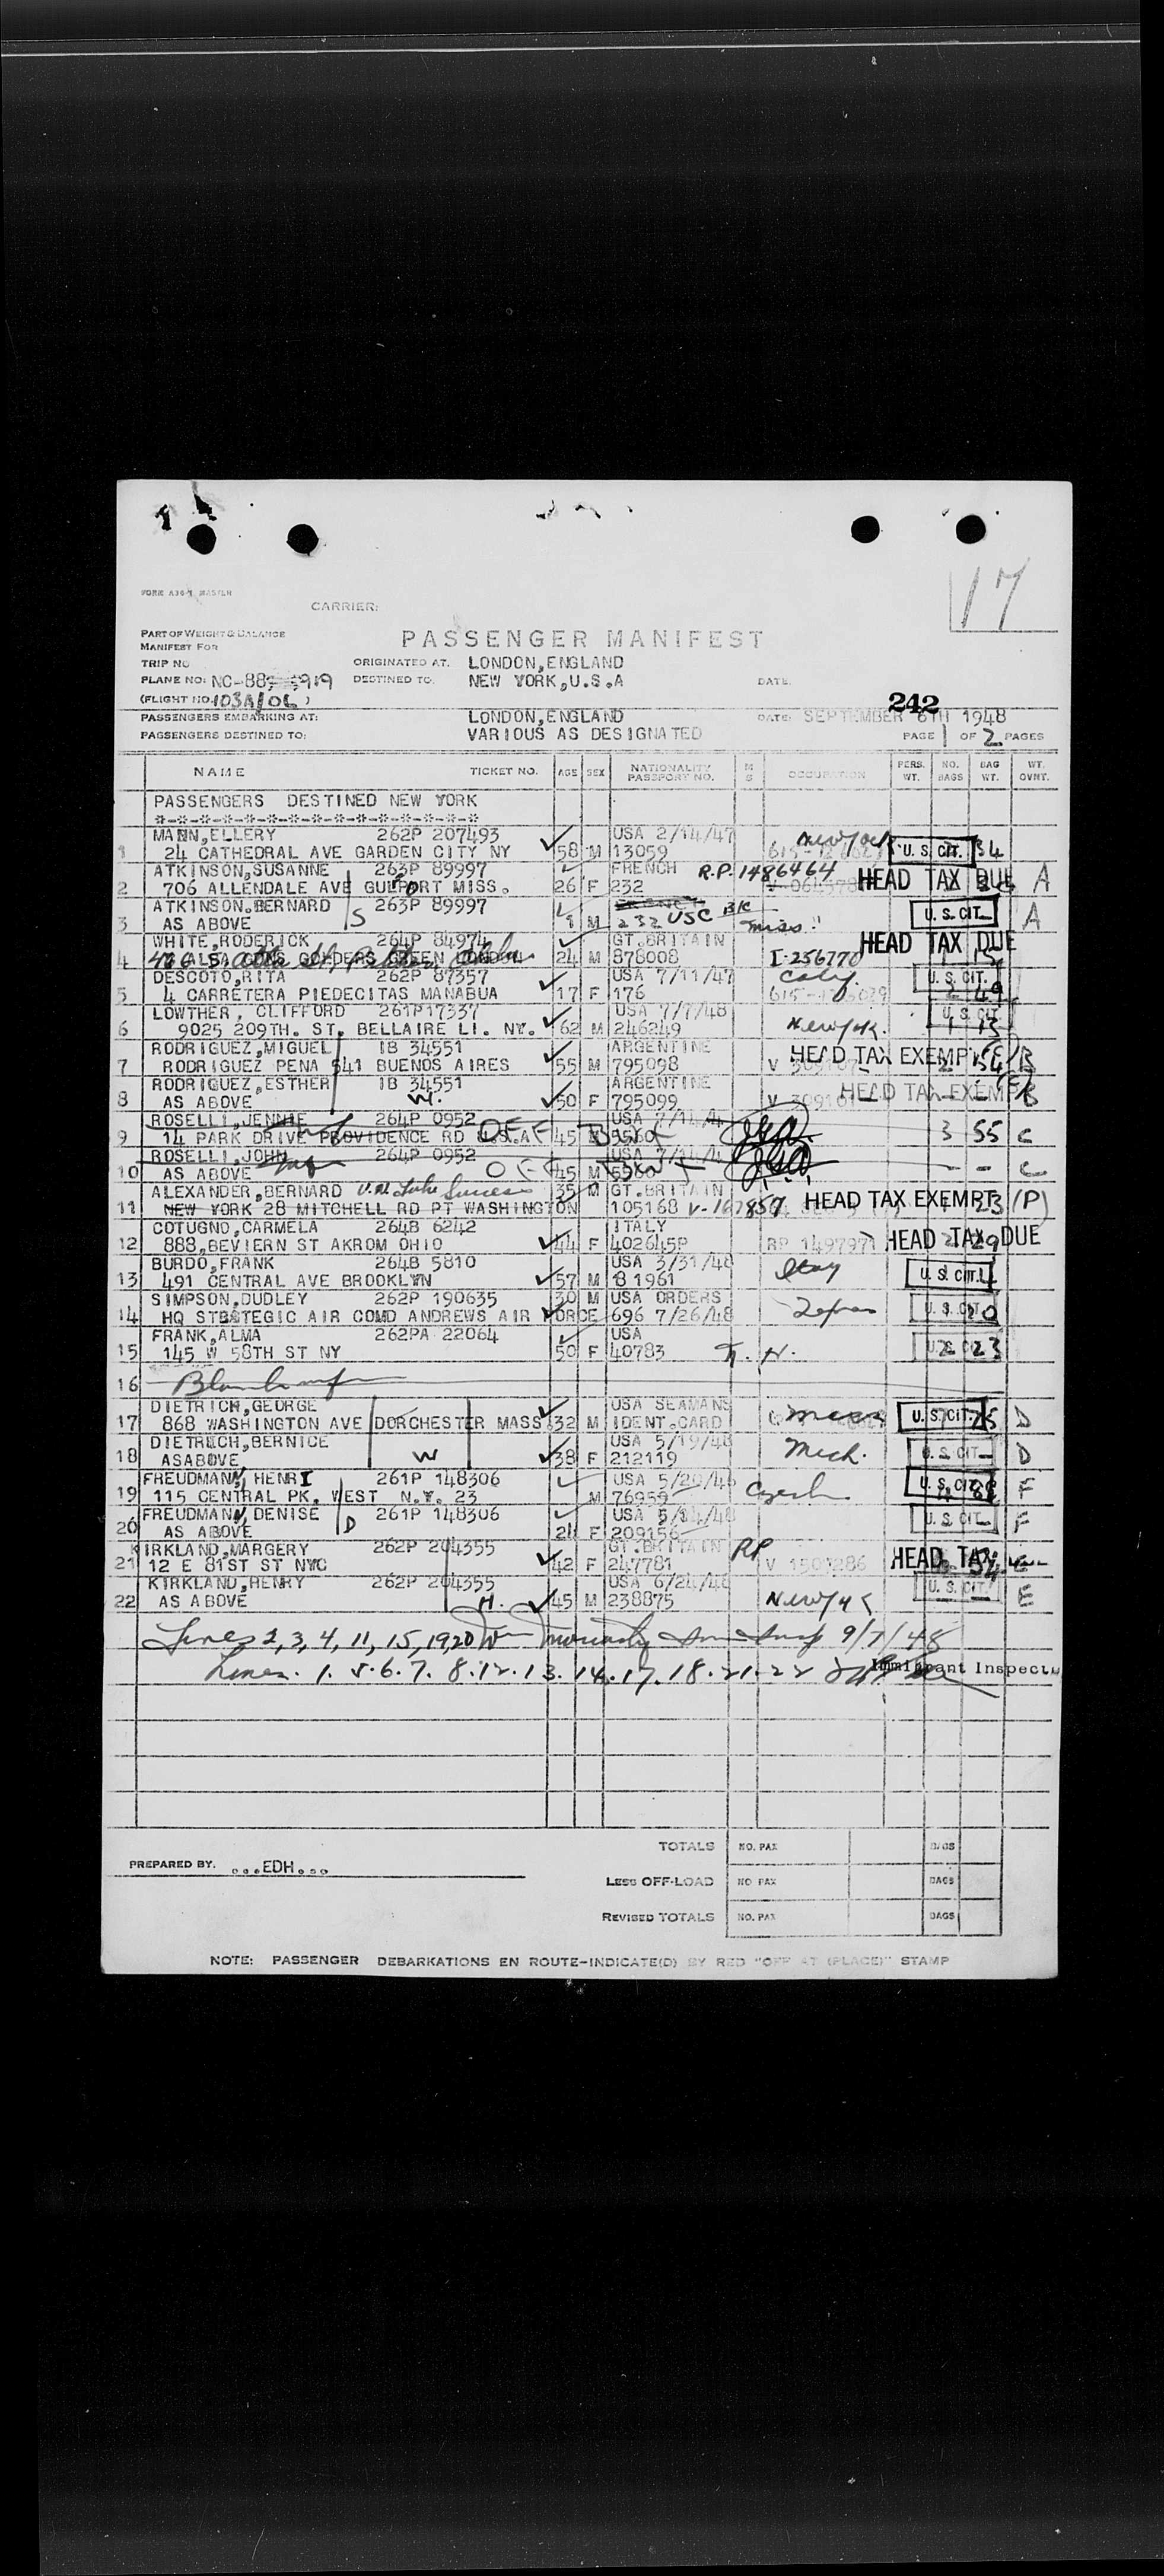 17
FORM A30-1 MASTER
CARRIER:
PART OF WEIGHT & BALANCE
MANIFEST FOR
PASSENGER MANIFEST
TRIP NO ORIGINATED AT. LONDON,ENGLAND
PLANE NO: NC-88 919 DESTINED TO. NEW YORK,U.S.A DATE.
(FLIGHT NO. 103A/06 )
242
PASSENGERS EMBARKING AT: LONDON,ENGLAND DATE: SEPTEMBER 6TH 1948
PASSENGERS DESTINED TO: VARIOUS AS DESIGNATED PAGE 1 OF 2 PAGES
NAME TICKET NO. AGE SEX NATIONALITY PASSPORT NO. M S OCCUPATION PERS. WT. NO. BAGS BAG WT. WT. OVNT.
PASSENGERS DESTINED NEW YORK
*-*-*-*-*-*-*-*-*-*-*-*-*-*
MANN,ELLERY 262P 207493 USA 2/14/47 New York
1 24 CATHEDRAL AVE GARDEN CITY NY 58 M 13059 U. S. CIT. 34
ATKINSON,SUSANNE 263P 89997 FRENCH R.P. 1486464
2 706 ALLENDALE AVE GULFPORT MISS. 26 F 232 HEAD TAX DUE A
ATKINSON.BERNARD S 263P 89997
3 AS ABOVE M 232 USC B/C Miss. U. S. CIT. A
WHITE,RODERICK 264P 84974 GT.BRITAIN HEAD TAX DUE
4 GOLDERS GREEN 24 M 878008 I-256770
DESCOTO,RITA 262P 87357 USA 7/11/47 Calif. U. S. CIT.
5 4 CARRETERA PIEDECITAS MANABUA 17 F 176 2 49
LOWTHER, CLIFFORD 261P17337 USA 7/7/48 U. S. CIT.
6 9025 209TH. ST. BELLAIRE LI. NY. 62 M 246249 New York. 1 13
RODRIGUEZ,MIGUEL IB 34551 ARGENTINE HEAD TAX EXEMPT
7 RODRIGUEZ PENA 541 BUENOS AIRES 55 M 795098 B
RODRIGUEZ,ESTHER IB 34551 ARGENTINE HEAD TAX EXEMPT
8 AS ABOVE W. 50 F 795099 B
ROSELLI,JENNIE 264P 0952
9 14 PARK DRIVE PROVIDENCE RD U.S.A OFF 45 3 55 C
ROSELLI.JOHN 264P 0952
10 AS ABOVE OFF 45 M - - C
ALEXANDER,BERNARD U.N. Lake Success 35 M GT.BRITAIN
11 NEW YORK 28 MITCHELL RD PT WASHINGTON 105168 V-167857 HEAD TAX EXEMPT 23 (P)
COTUGNO,CARMELA 264B 6242 ITALY
12 888,BEVIERN ST AKROM OHIO 44 F 402645P RP 1497971 HEAD TAX DUE
BURDO,FRANK 264B 5810 USA 3/31/48 Italy
13 491 CENTRAL AVE BROOKLYN 57 M 81961 U. S. CIT.
SIMPSON,DUDLEY 262P 190635 30 M USA ORDERS
14 HQ STRATEGIC AIR COMD ANDREWS AIR FORCE 696 7/26/48 U. S. CIT.
FRANK,ALMA 262PA 22064 USA
15 145 W 58TH ST NY 50 F 40783 U. S. CIT. 2 23
16 Blank
DIETRICH,GEORGE USA SEAMANS
17 868 WASHINGTON AVE DORCHESTER MASS 32 M IDENT.CARD Mass U. S. CIT. D
DIETRICH,BERNICE USA 5/19/48
18 ASABOVE W 38 F 212119 Mich. U. S. CIT. D
FREUDMANN, HENRI 261P 148306
19 115 CENTRAL PK. WEST N.Y. 23 M 76959 Czech U. S. CIT. F
FREUDMANN, DENISE D 261P 148306
20 AS ABOVE F 209156 U. S. CIT. F
KIRKLAND,MARGERY 262P 204355 GT.BRITAIN RP
21 12 E 81ST ST NYC 42 F 247781 V 1507286 HEAD TAX
KIRKLAND,HENRY 262P 204355 USA 6/24/48 U. S. CIT.
22 AS ABOVE H. 45 M 238875 New York E
Lines 2,3,4,11,15,19,20 9/7/48
Lines. 1. 5.6.7. 8.12.13.14.17.18.21.22 Immigrant Inspector
TOTALS NO. PAX BAGS
PREPARED BY. ...EDH...
LESS OFF-LOAD NO PAX BAGS
REVISED TOTALS NO. PAX BAGS
NOTE: PASSENGER DEBARKATIONS EN ROUTE-INDICATE(D) BY RED "OFF AT (PLACE)" STAMP